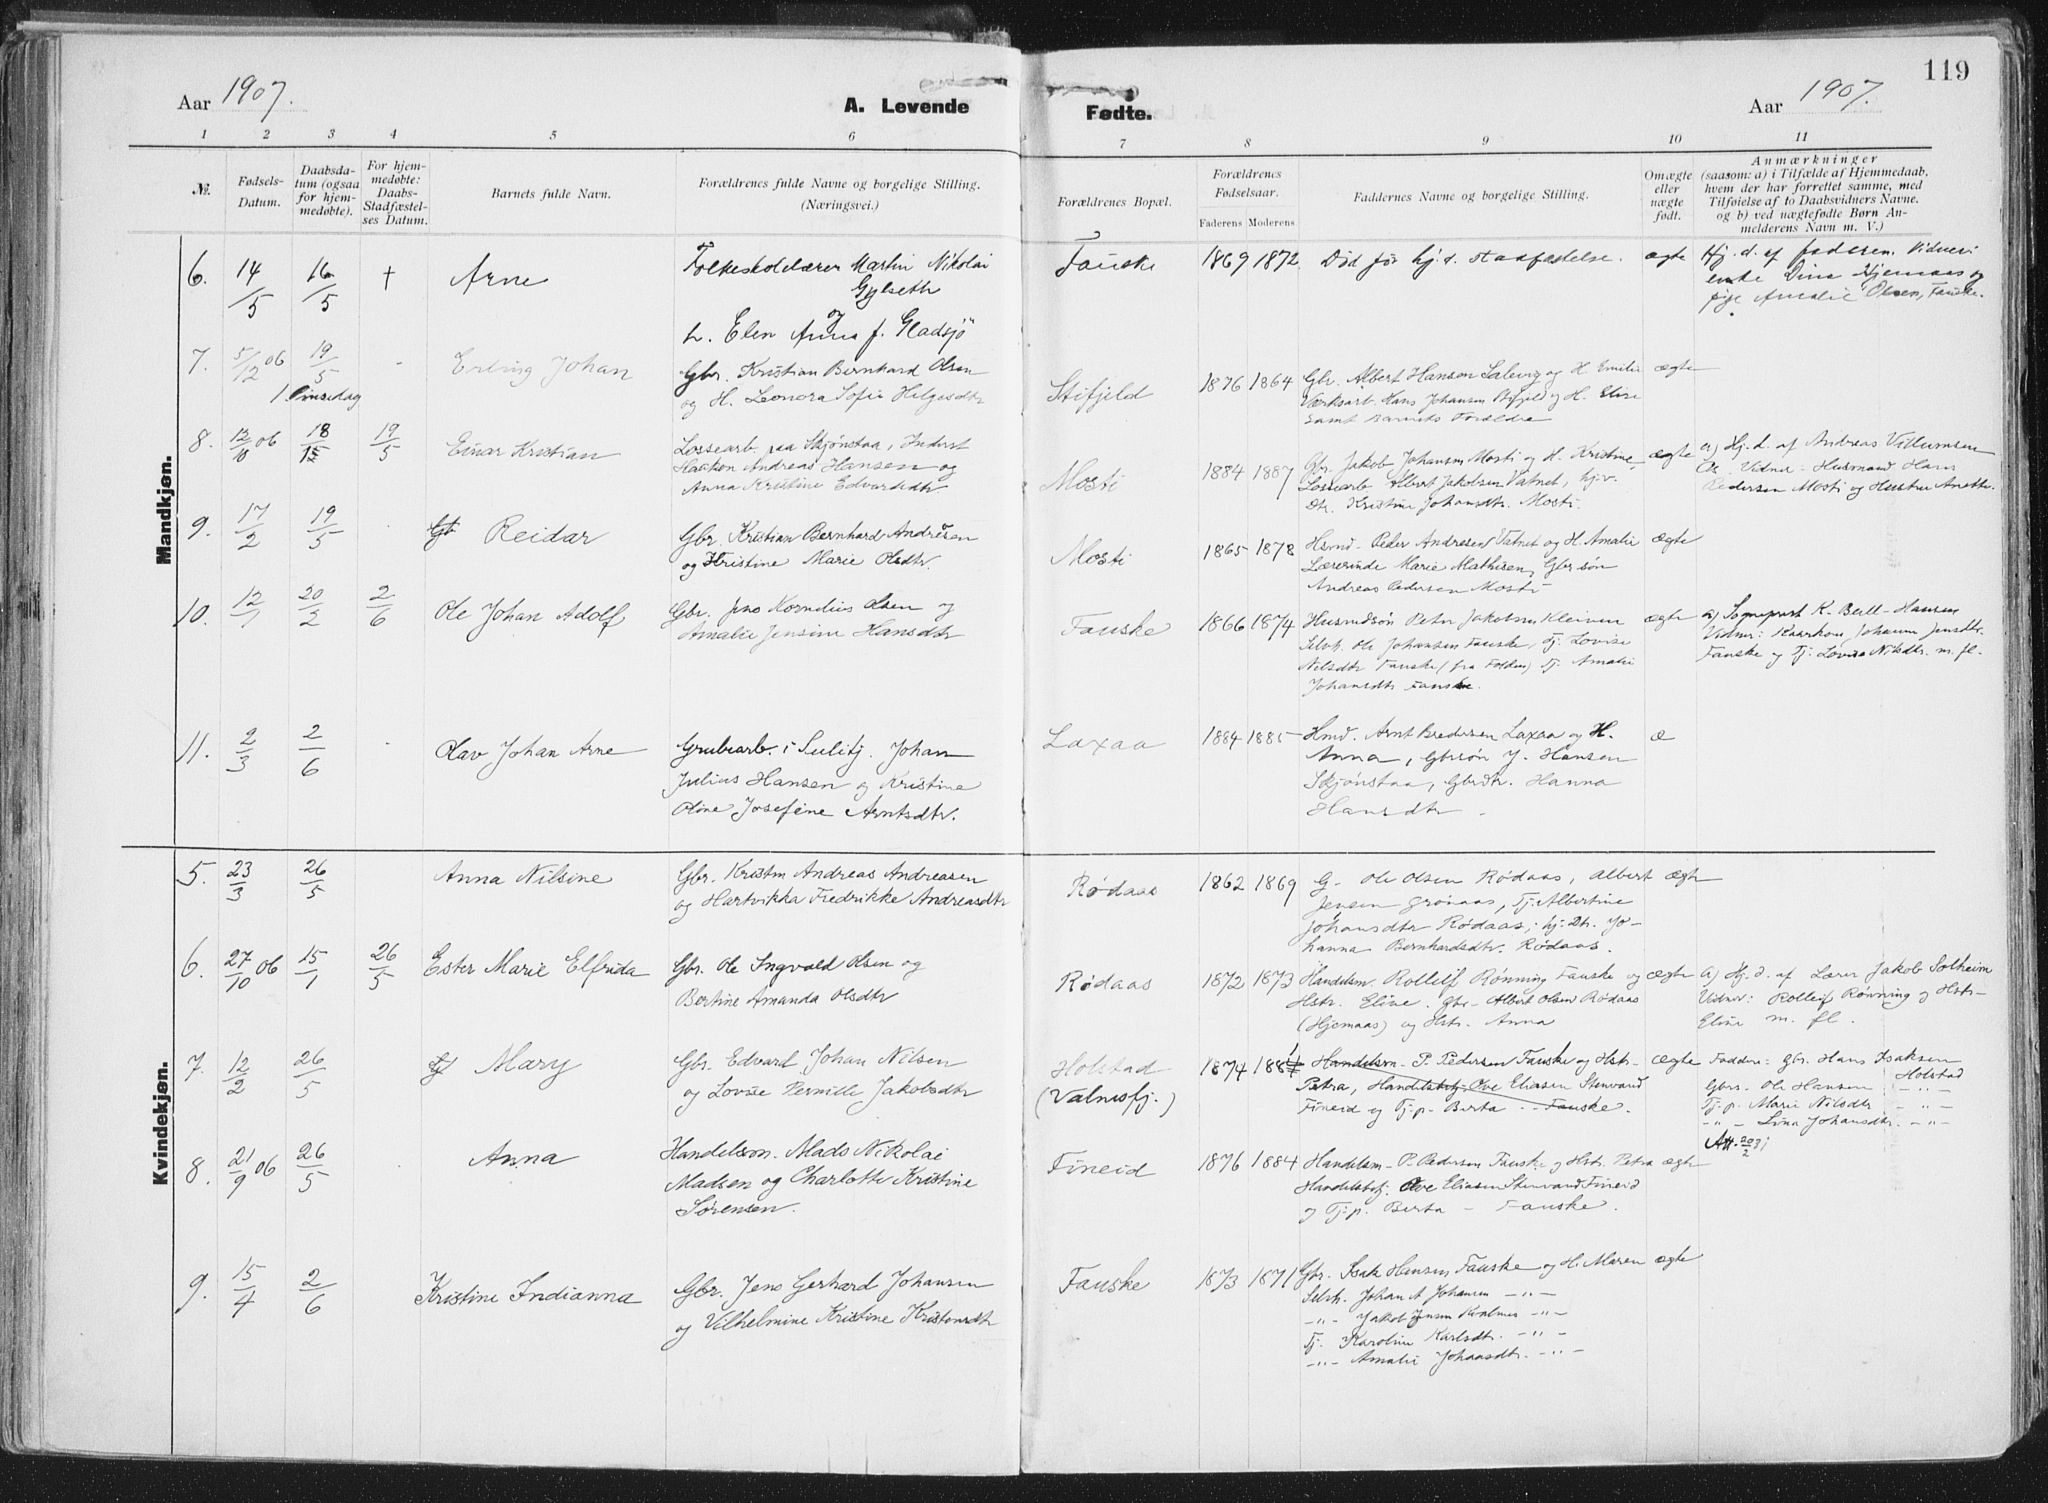 119
Aar 1907.
A. Levende
Fødte.
Aar 1907.
1 2 3 4 5 6 7 8 9 10 11
№.
Fødsels-
Datum.
Daabsda-
tum (ogsaa
for hjem-
medøbte).
For hjem-
medøbte:
Daabs-
Stadfæstel-
ses Datum.
Barnets fulde Navn.
Forældrenes fulde Navne og borgelige Stilling.
(Næringsvei.)
Forældrenes Bopæl.
Forældrenes
Fødselsaar.
Faderens Moderens
Faddernes Navne og borgelige Stilling.
Om ægte
eller
nægte
født.
Anmærkninger
(saasom: a) i Tilfælde af Hjemmedaab,
hvem der har forrettet samme, med
Tilføielse af to Daabsvidners Navne.
og b) ved uægtefødte Børn An-
melderens Navn m. V.)
Mandkjøn.
6. 14/5 16/5 + Arne
Folkeskolelærer Martin Nikolai
Gylseth
og
h. Elen Anna f. Gladsjö
Fauske 1869 1872
Död før hj. d. stadfæstelse. ægte
Hj. d. af faderen. Vidner:
enke Dina Hjemaas og
pige Amalie Olsen, Fauske.
7. 5/12 06 19/5 - Erling Johan
1. Pinsedag
Gbr. Kristian Bernhard Olsen
og H. Leonora Sofie Helgesdtr
Stifjeld 1876 1864
Gbr. Albert Hansen Salevig og H. Emilie ægte
Værksarb. Hans Johansen og H. Elise
samt Barnets Forældre
8. 12/10 06 18/15 19/5 Einar Kristian
Lossearb. paa Skjønstaa, Inderst
Haakon Andreas Hansen og
Anna Kristine Edvardsdtr
Mosti 1884 1887
Gbr. Jakob Johansen Mosti og H. Kristine, ægte
Lossearb Albert Jakobsen Vatnet, hj.v.
Dtr. Kristine Johansdtr. Mosti.
a) Hj. d. af Andreas Villumsen
Vidner - Husmand Hans
Pedersen Mosti og Hustru Anette.
9. 17/2 19/5 - Reidar
Gbr. Kristian Bernhard Andresen
og Kristine Marie Olsdtr.
Mosti 1865 1878
Hsmd. Peder Andresen Vatnet og H. Amalie ægte
Lærerinde Marie Mathisen, Gbr søn
Andreas Pedersen Mosti
10. 12/1 20/2 2/6 Ole Johan Adolf
Gbr. Jens Kornelius Olsen og
Amalie Jensine Hansdtr
Fauske 1866 1874
Husmdsøn Peter Jakobsen Kleiven ægte
Selvh. Ole Johansen Fauske, Tj. Lovise
Nilsdtr Fauske (fra Folden) Tj. Amalie
Johansdtr Fauske.
a) Sognepræst K. Bull-Hansen
Vidner: Kaarkone Johanna Jensdtr.
Fauske og Tj. Lovise Nilsdtr. m. fl.
11. 2/3 2/6 - Olav Johan Arne
Grubearb. i Sulitj. Johan
Julius Hansen og Kristine
Oline Josefine Arntsdtr.
Laxaa 1884 1885
Hmd. Arnt Bredesen Laxaa og H. æ
Anna, Gbrsøn J. Hansen
Skjønstaa, Gbrdtr. Hanna
Hansdtr -
Kvindekjøn.
5. 23/3 26/5 Anna Nilsine
Gbr. Kristen Andreas Andreasen
og Hartvikka Fredrikke Andreasdtr
Rødaas 1862 1869
G- Ole Olsen Rødaas, Albert ægte
Jensen Grønaas, Tj. Albertine
Johansdtr Rødaas, hj. Dtr. Jo-
hanna Bernhardsdtr. Rødaas.
6. 27/10 06 15/1 26/5 Ester Marie Elfrida
Gbr. Ole Ingvald Olsen og
Bertine Amanda Olsdtr
Rødaas 1872 1873
Handelsm. Rolleif Rønning Fauske og ægte
Hstr. Eline. Gbr- Albert Olsen Rødaas
(Hjemaas) og Hstr. Anna
a) Hj. d. af Lærer Jakob Solheim
Vidner: Rolleif Rønning og Hstr-
Eline m. fl.
7. 12/2 26/5 Mary
Gbr. Edvard Johan Nilsen
og Lovise Pernille Jakobsdtr
Holstad
(Valnesfj.)
1874 1884
Handelsm. P. Pedersen Fauske og Hstr- ægte
Petra, Handelsbetj- Ove Eliasen Stenvand
Fineid og Tj.p. Berta - Fauske.
Faddere: Gbr. Hans Isaksen
Holstad
Gbrs. Ole Hansen -"-
Tj. p. Marie Nilsdtr -"-
-"- Lina Johansdtr. -"-
Att. 20/2 31
8. 21/9 06 26/5 - Anna
Handelsm. Mads Nikolai
Madsen og Charlotte Kristine
Sørensen.
Fineid 1876 1884
Handelsm- P. Pedersen Fauske og Hstr. Petra ægte
Handelsbetj. Ove Eliasen Stenvand Fineid
og Tj.p. Berta - Fauske.
9. 15/4 2/6 Kristine Indianna
Gbr. Jens Gerhard Johansen
og Vilhelmine Kristine Kristensdtr
Fauske 1873 1871
Gbr. Isak Hansen Fauske og H. Maren ægte
Selvh. Johan A Johansen -"-
-"- Jakob Jensen Kvalnes -"-
Tj. Karoline Karlsdtr. -"-
-"- Amalie Johansdtr. -"-